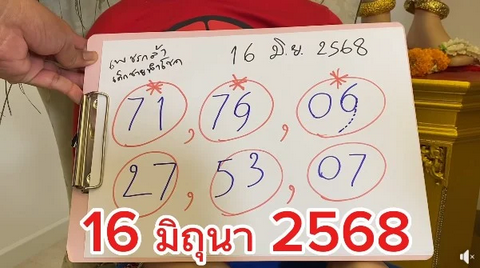 เพชรกล้า 16 มิ.ย. 2568
เด็กชายนำโชค
71, 79, 06
27, 53, 07
16 มิถุนา 2568